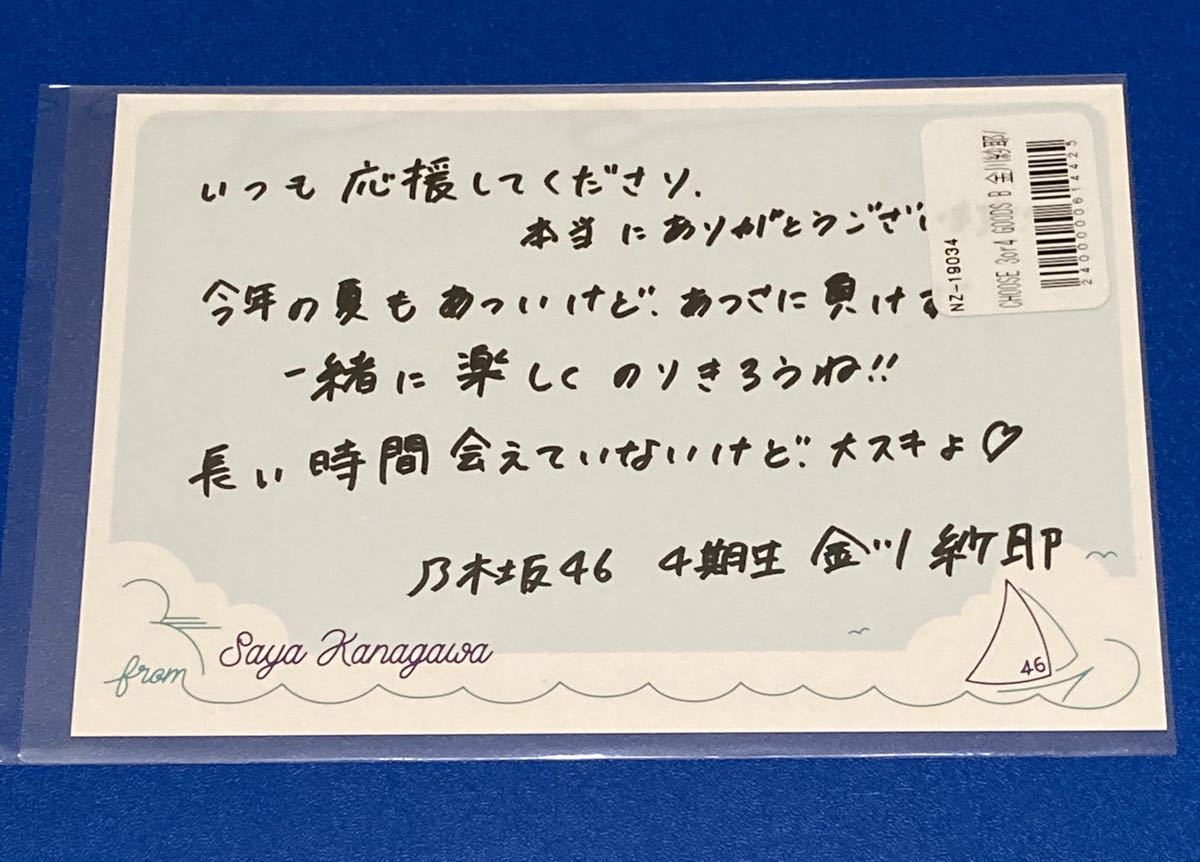 いつも 応援してくださり、
本当に ありがとうござい
今年の夏も あついけど、あつさに 負けず
一緒に 楽しく のりきろうね!!
長い 時間 会えていないけど、大スキよ♡
乃木坂46 4期生 金川 紗耶
from Saya Kanagawa
46
NZ-19034
CHOOSE 3or4 GOODS B 金川紗耶/
2400000614425